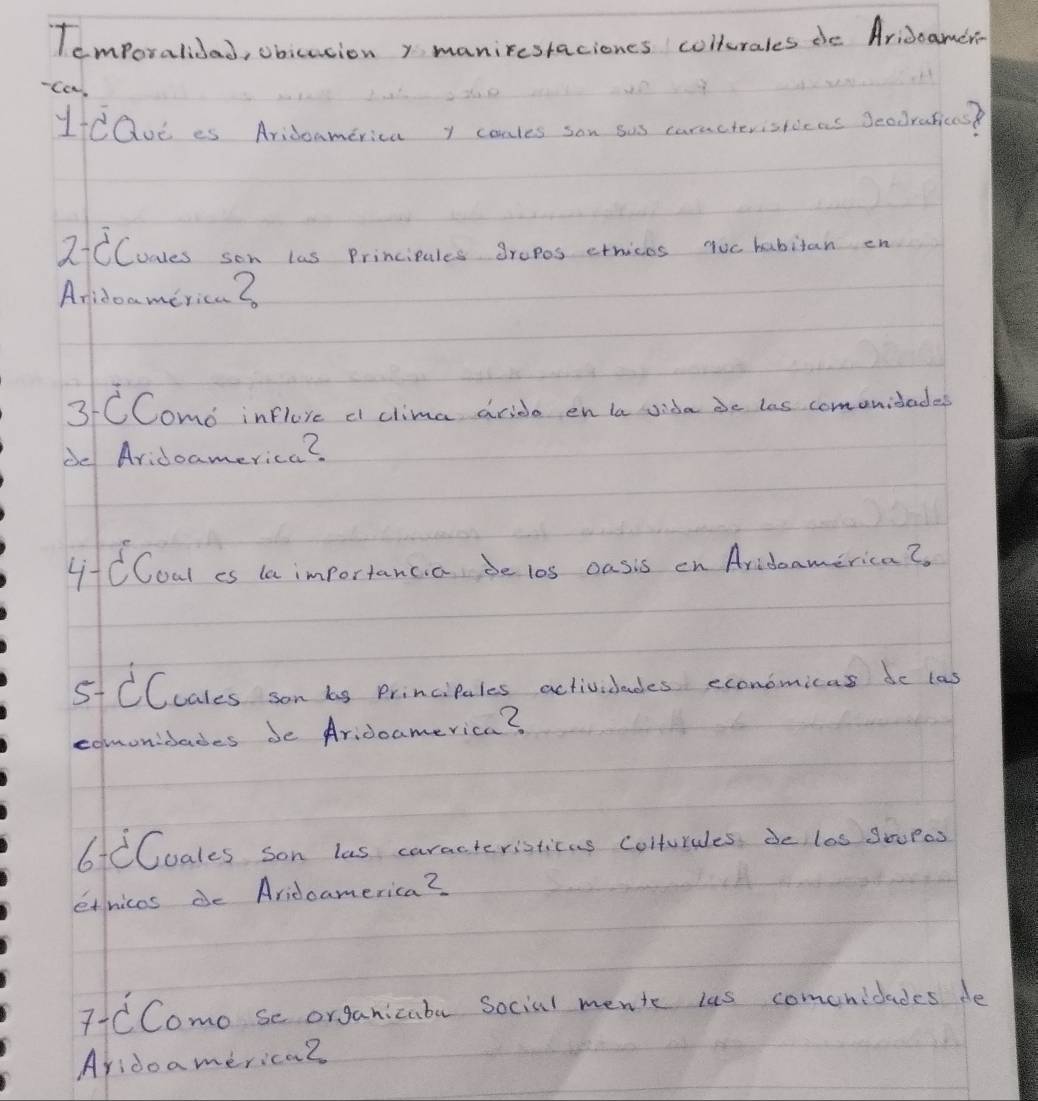 Temporalidad, ubicacion y manifestaciones culturales de Aridoaméri-
-ca.
1-¿Qué es Aridoamérica y cuales son sus caracteristicas geograficas?
2-¿Cuales son las Principales grupos etnicos que habitan en
Aridoamérica?
3-¿Comó influye el clima árido en la vida de las comunidades
de Aridoamerica?
4-¿Cual es la importancia de los oasis en Aridoamérica?
5-¿Cuales son las principales actividades económicas de las
comunidades de Aridoamerica?
6-¿Cuales son las caracteristicas Culturales de los grupos
étnicos de Aridoamerica?
7-¿Como se organicaba Social mente las comunidades de
Aridoamérica?